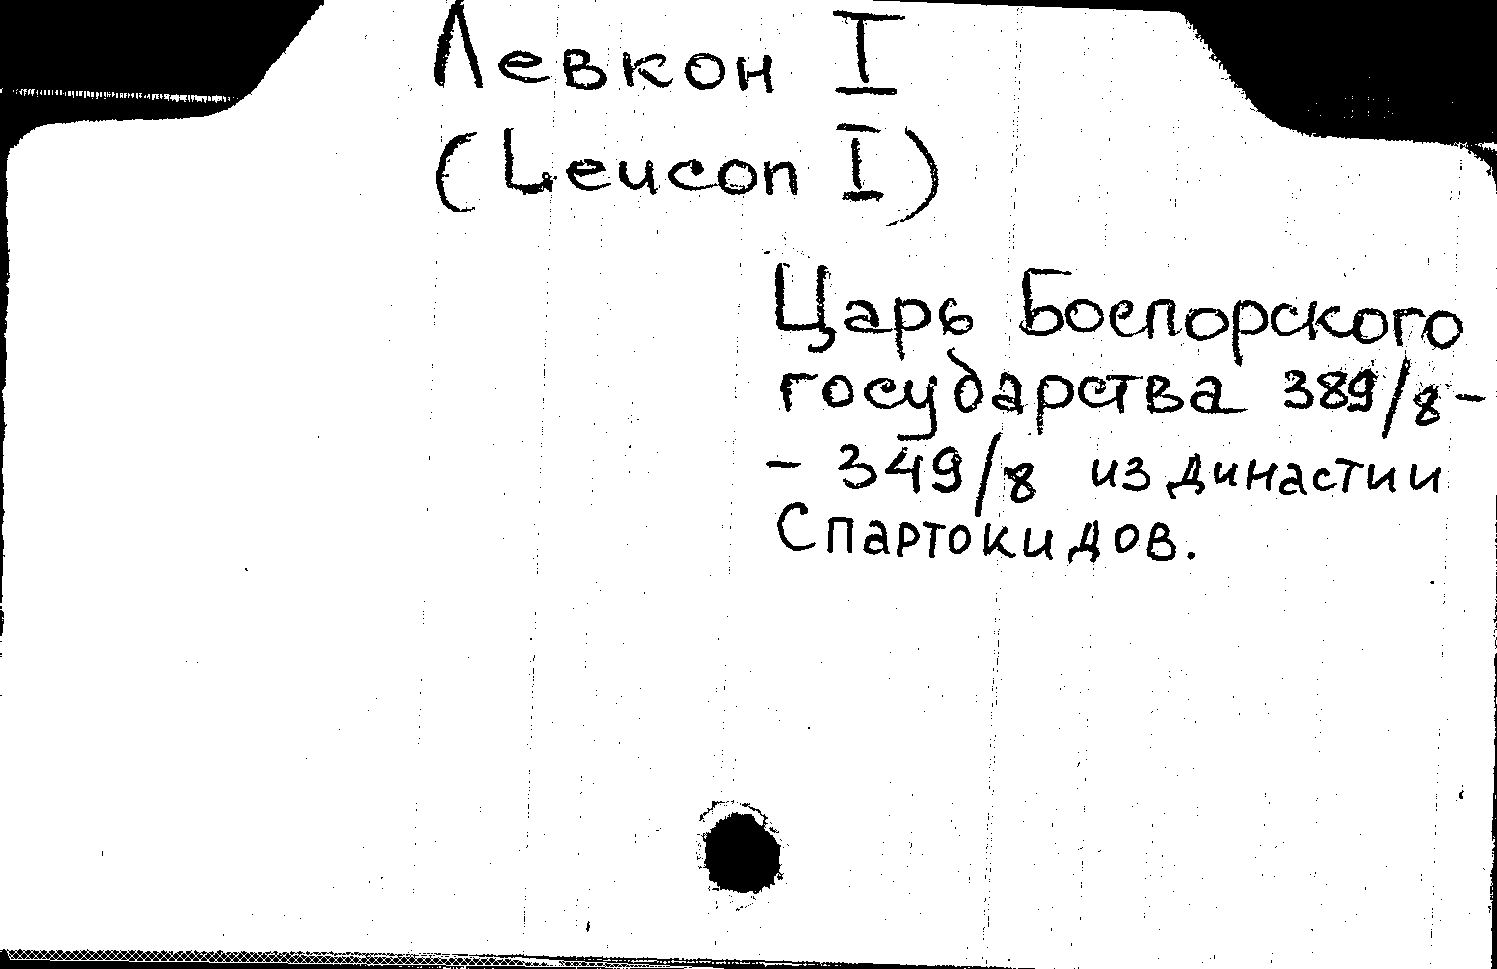 Левкон I
(Leucon I)
Царь Боспорского
государства 389/8-
- 349/8 из династии
Спартокидов.